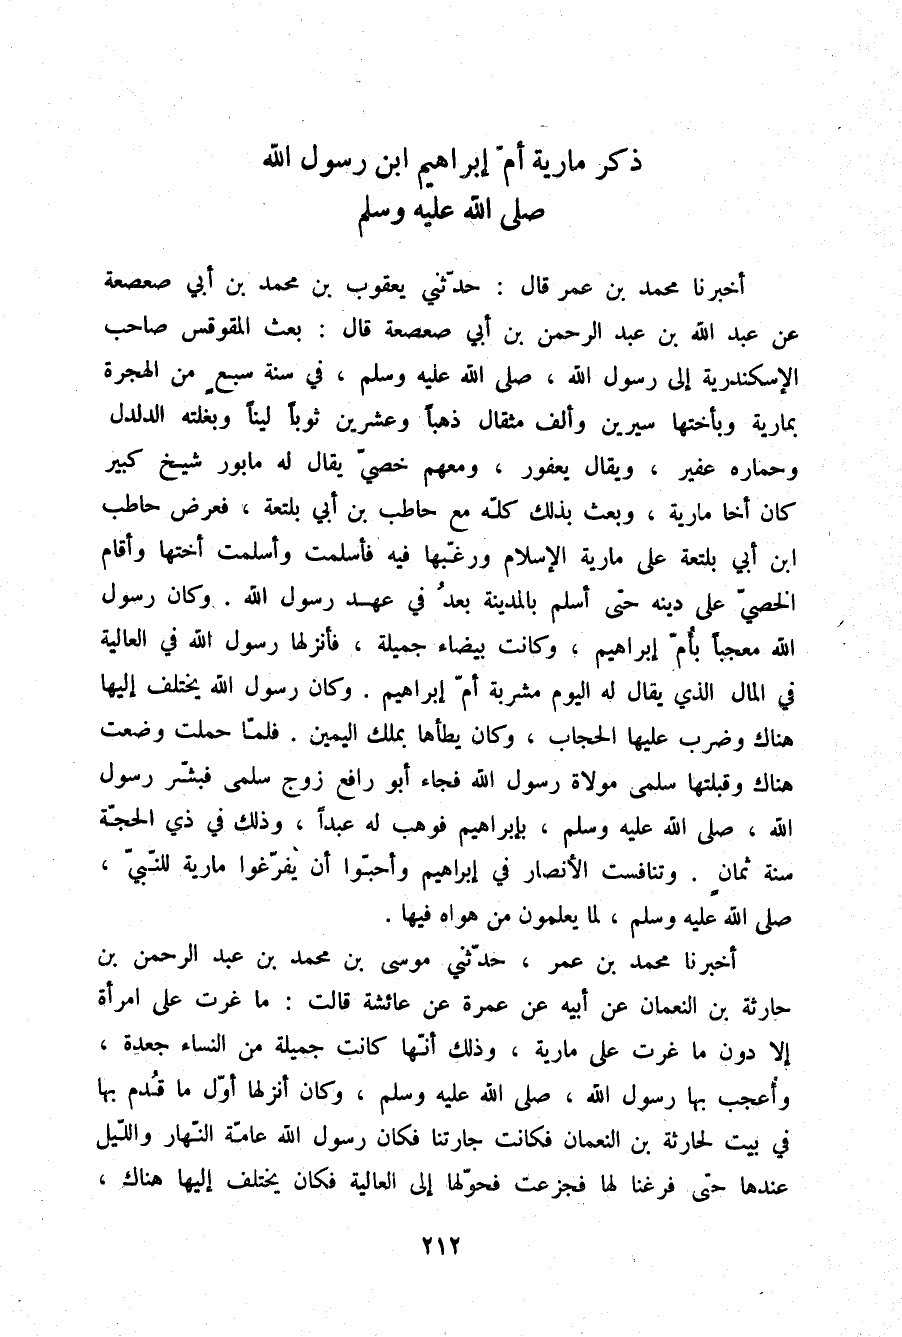 ذكر مارية أمّ إبراهيم ابن رسول الله
صلى الله عليه وسلم
أخبرنا محمد بن عمر قال : حدّثني يعقوب بن محمد بن أبي صعصعة
عن عبد الله بن عبد الرحمن بن أبي صعصعة قال : بعث المقوقس صاحب
الإسكندرية إلى رسول الله ، صلى الله عليه وسلم ، في سنة سبعٍ من الهجرة
بمارية وبأختها سيرين وألف مثقال ذهباً وعشرين ثوباً ليناً وبغلته الدلدل
وحماره عفير ، ويقال يعفور ، ومعهم خصيّ يقال له مابور شيخ كبير
كان أخا مارية ، وبعث بذلك كلّه مع حاطب بن أبي بلتعة ، فعرض حاطب
ابن أبي بلتعة على مارية الإسلام ورغّبها فيه فأسلمت وأسلمت أختها وأقام
الخصيّ على دينه حتّى أسلم بالمدينة بعدُ في عهد رسول الله . وكان رسول
الله معجباً بأُمّ إبراهيم ، وكانت بيضاء جميلة ، فأنزلها رسول الله في العالية
في المال الذي يقال له اليوم مشربة أمّ إبراهيم . وكان رسول الله يختلف إليها
هناك وضرب عليها الحجاب ، وكان يطأها بملك اليمين . فلمّا حملت وضعت
هناك وقبلتها سلمى مولاة رسول الله فجاء أبو رافع زوج سلمى فبشّر رسول
الله ، صلى الله عليه وسلم ، بإبراهيم فوهب له عبداً ، وذلك في ذي الحجّة
سنة ثمانٍ . وتنافست الأنصار في إبراهيم وأحبّوا أن يُفرّغوا مارية للنّبيّ ،
صلى الله عليه وسلم ، لما يعلمون من هواه فيها .
أخبرنا محمد بن عمر ، حدّثني موسى بن محمد بن عبد الرحمن بن
حارثة بن النعمان عن أبيه عن عمرة عن عائشة قالت : ما غرت على امرأة
إلا دون ما غرت على مارية ، وذلك أنّها كانت جميلة من النساء جعدة ،
وأُعجب بها رسول الله ، صلى الله عليه وسلم ، وكان أنزلها أوّل ما قُدم بها
في بيت لحارثة بن النعمان فكانت جارتنا فكان رسول الله عامّة النّهار واللّيل
عندها حتّى فرغنا لها فجزعت فحوّلها إلى العالية فكان يختلف إليها هناك ،
٢١٢